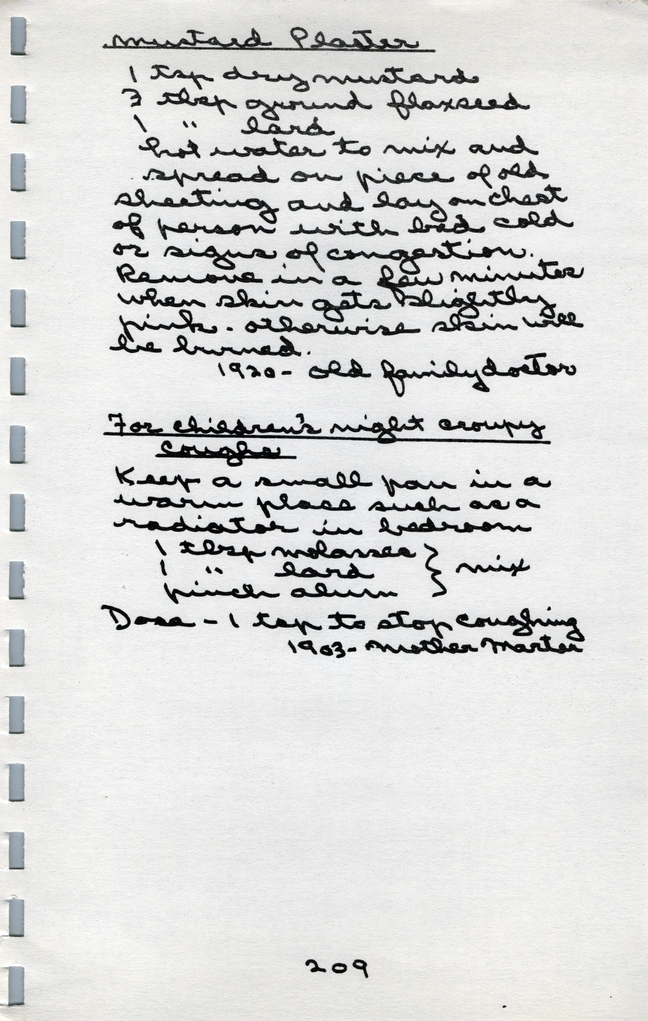 Mustard Plaster
1 tsp dry mustard
3 tbsp ground flaxseed
1 " lard
hot water to mix and
spread on piece of old
sheeting and lay on chest
of person with bad cold
or signs of congestion.
Remove in a few minutes
when skin gets slightly
pink. otherwise skin will
be burned.
1920- old family doctor
For children's night croupy
coughs
Keep a small pan in a
warm place such as a
radiator in bedroom
1 tbsp molasses
1 " lard } mix
pinch alum
Dose - 1 tsp to stop coughing
1903- Mother Marter
209